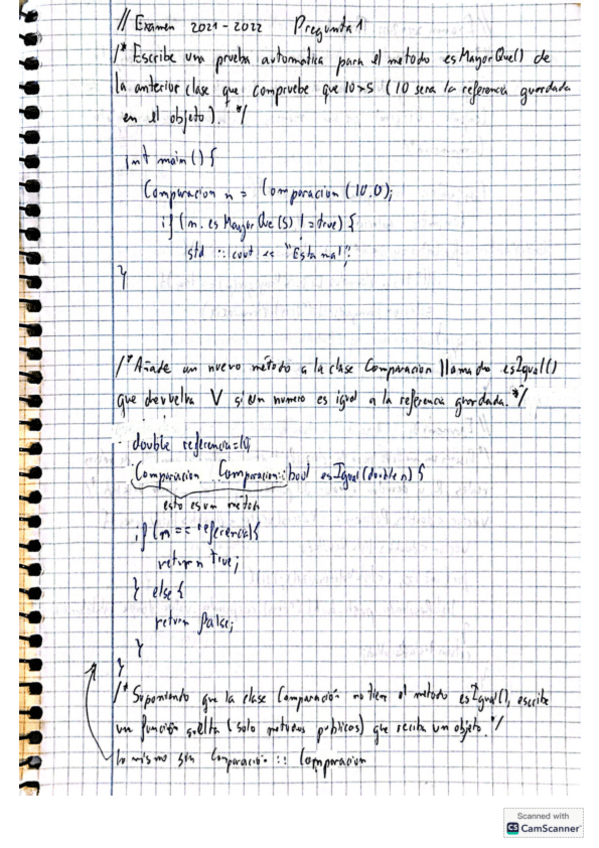 // Examen 2021-2022 Pregunta 1
/* Escribe una prueba automatica para el metodo esMayorQue() de
la anterior clase que compruebe que 10>5 (10 sera la referencia guardada
en el objeto). */
int main() {
Comparacion n = Comparacion (10.0);
if (n.esMayorQue(5) != true) {
std :: cout << "Esta mal";
}
/* Añade un nuevo método a la clase Comparacion llamado esIgual()
que devuelva V si un numero es igual a la referencia guardada. */
double referencia=10;
Comparacion Comparacion:: bool esIgual(double n) {
esto es un metodo
if (n == referencia){
return true;
} else {
return false;
}
}
/* Suponiendo que la clase Comparación no tiene el metodo esIgual(), escribe
un función suelta (solo metodos publicos) que reciba un objeto. */
Lo mismo sin Comparacion :: Comparacion
Scanned with
CS CamScanner